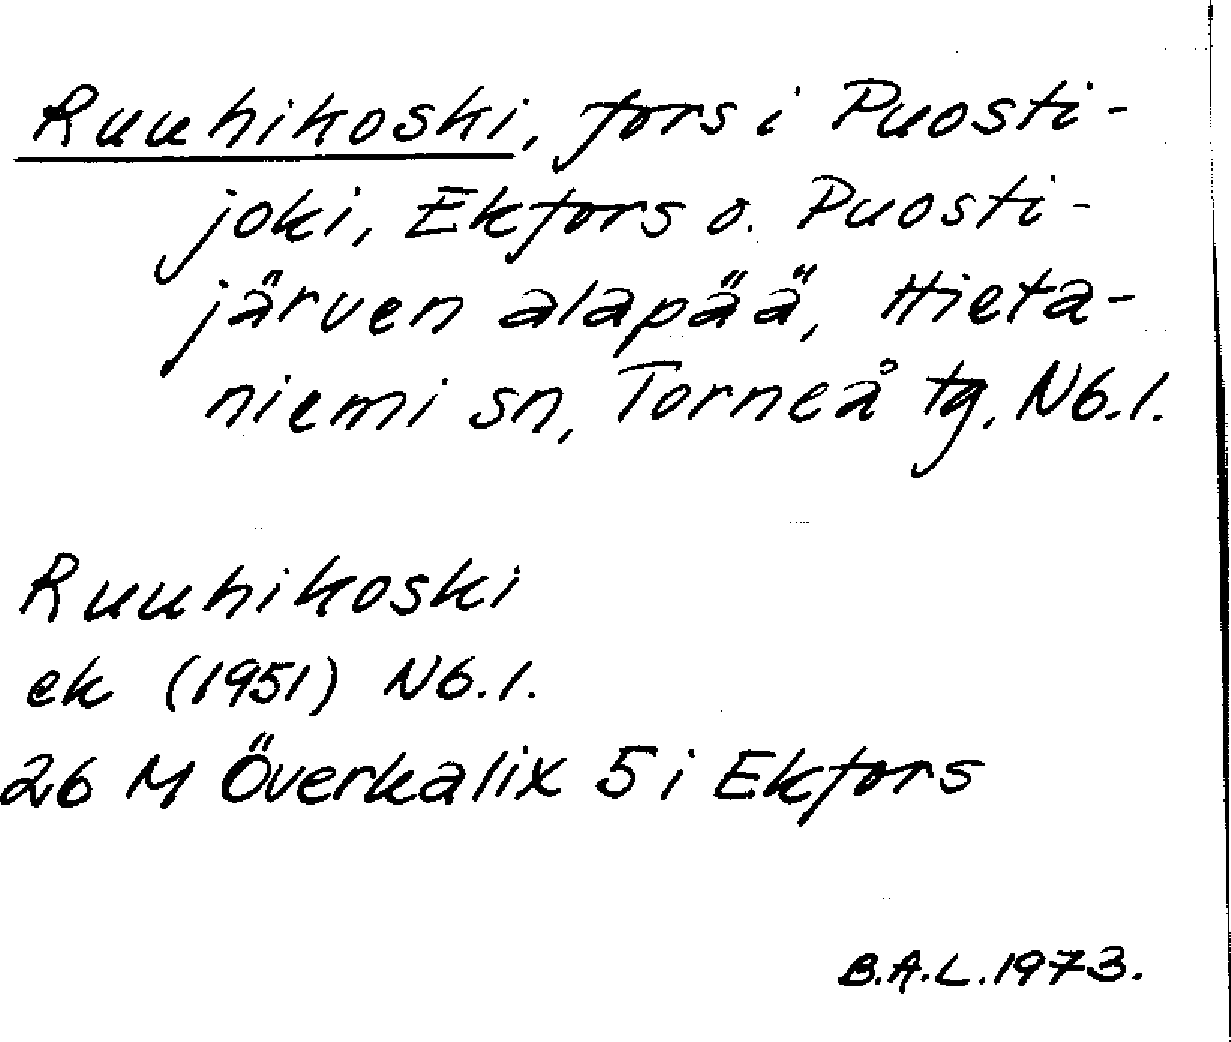 Ruuhikoski, fors i Puosti-
joki, Ekfors o. Puosti-
järven alapää, Hieta-
niemi sn, Torneå tg. Nb. l.
Ruuhikoski
ek (1951) Nb. l.
26 M Överkalix 5 i Ekfors
B.A.L. 1973.